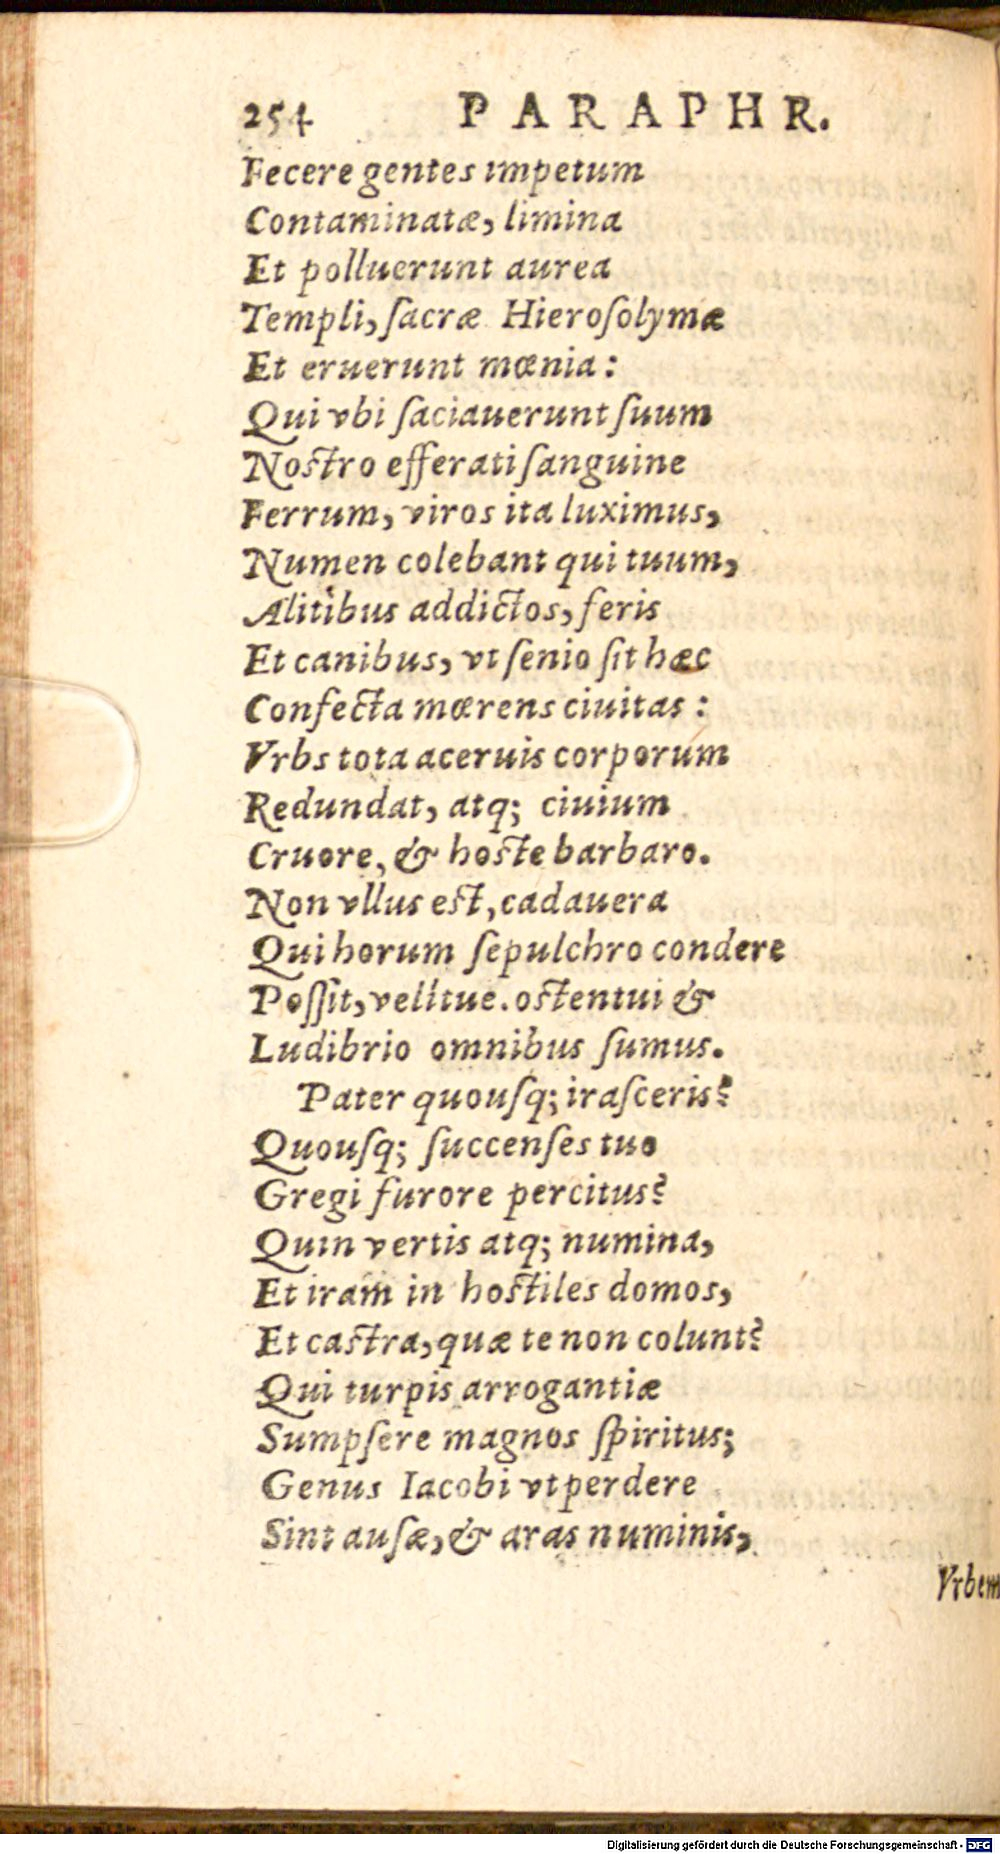 254 PARAPHR.
Fecere gentes impetum
Contaminatæ, limina
Et polluerunt aurea
Templi, ſacræ Hieroſolymæ
Et eruerunt mœnia:
Qui vbi ſaciauerunt ſuum
Noſtro efferati ſanguine
Ferrum, viros ita luximus,
Numen colebant qui tuum,
Alitibus addictos, feris
Et canibus, vt ſenio ſit hæc
Confecta mœrens ciuitas:
Vrbs tota aceruis corporum
Redundat, atq; ciuium
Cruore, & hoſte barbaro.
Non vllus eſt, cadauera
Qui horum ſepulchro condere
Poſſit, velitue. oſtentui &
Ludibrio omnibus ſumus.
Pater quouſq; iraſceris?
Quouſq; ſuccenſes tuo
Gregi furore percitus?
Quin vertis atq; numina,
Et iram in hoſtiles domos,
Et caſtra, quæ te non colunt?
Qui turpis arrogantiæ
Sumpſere magnos ſpiritus;
Genus Iacobi vt perdere
Sint auſæ, & aras numinis,
Vrbem
Digitalisierung gefördert durch die Deutsche Forschungsgemeinschaft - DFG